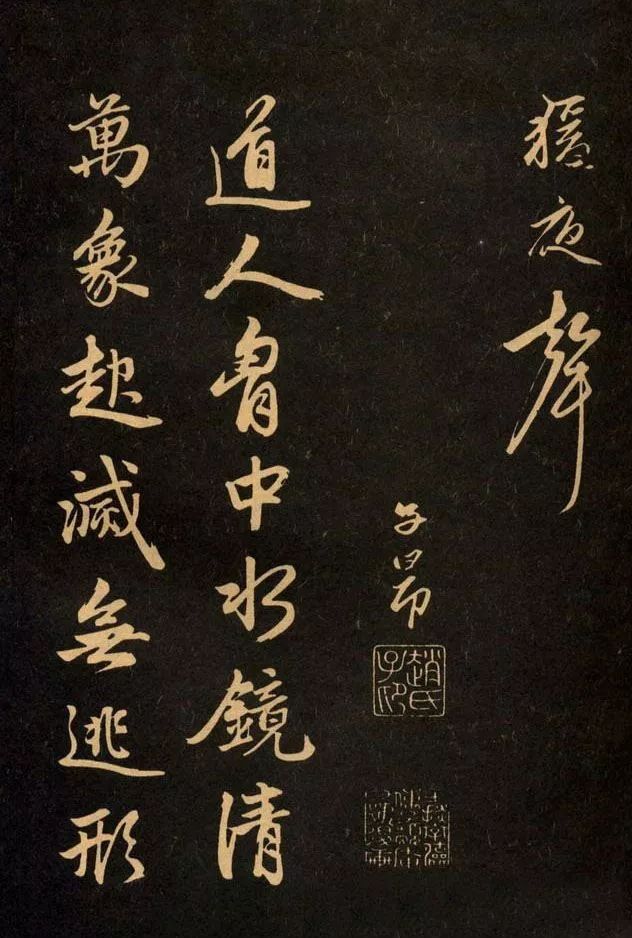 猿夜聲
子昂
趙氏子昂
道人胷中水鏡清
萬象起滅無逃形